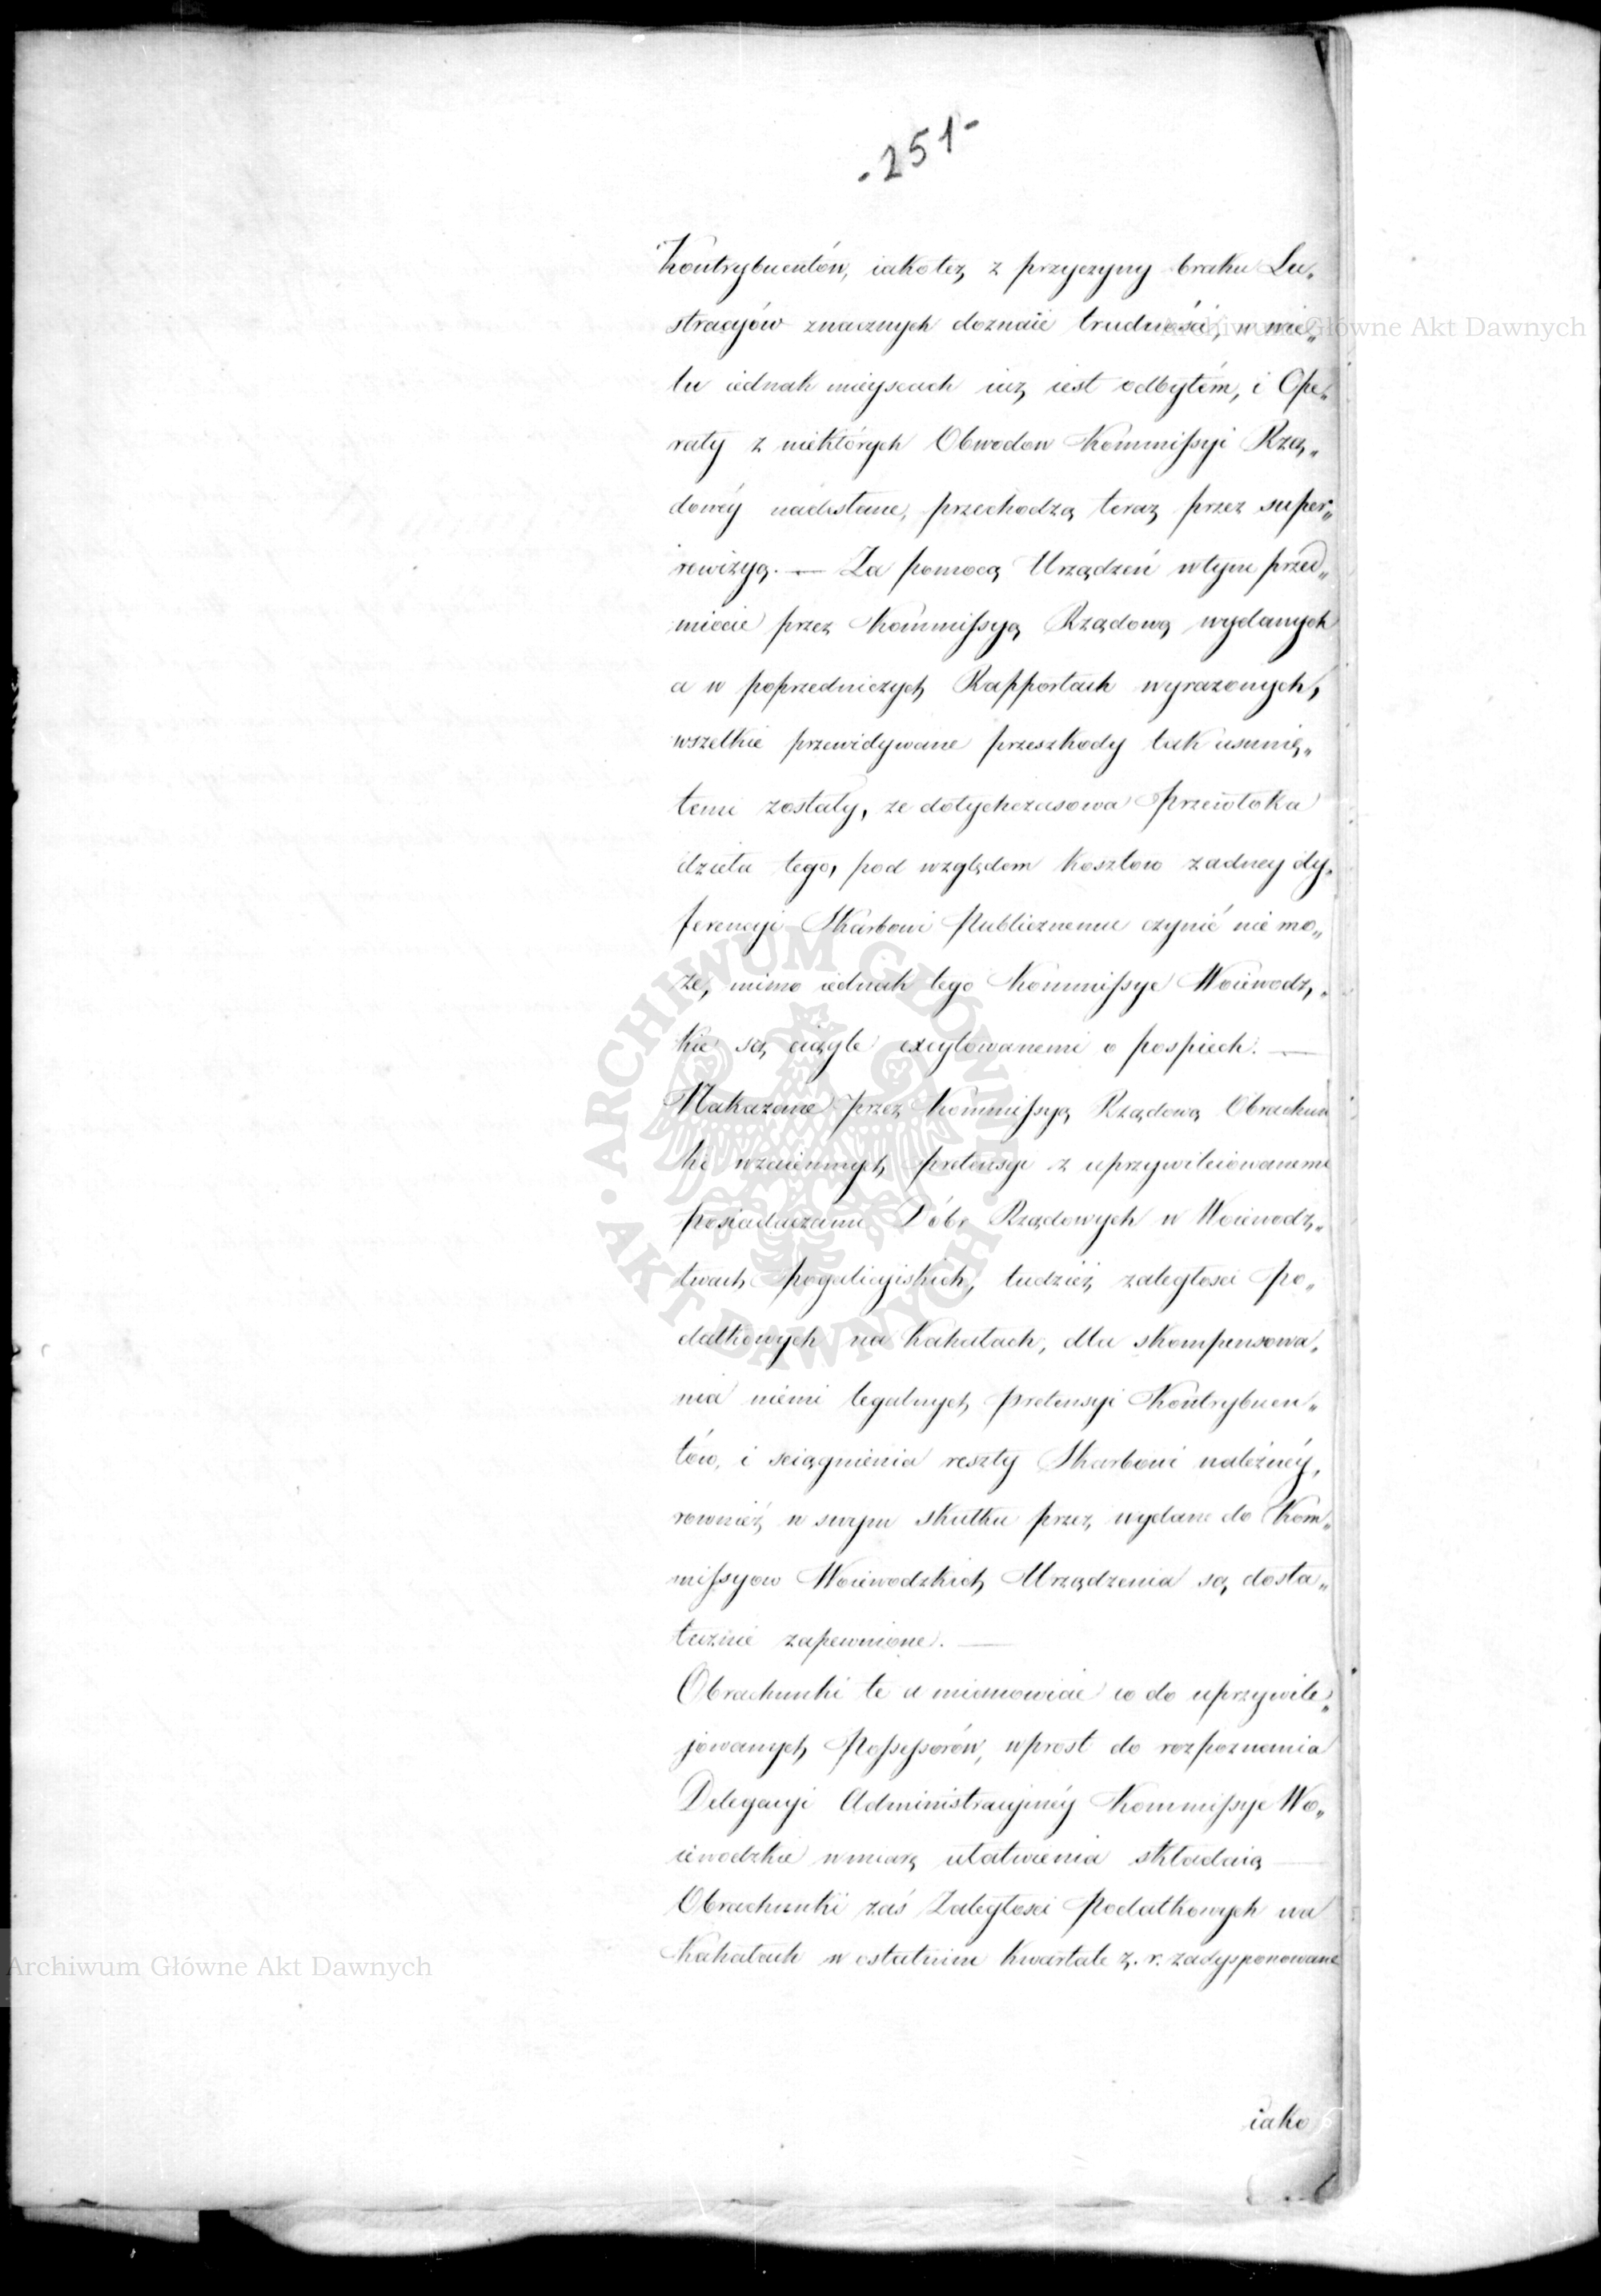 - 251 -
Kontrybuentów, iakoteż z przyczyny braku Lu„
stracyów znacznych doznaie trudności, w wie„
lu iednak mieyscach iuż iest odbytém, i Ope„
raty z niektórych Obwodow Kommissyi Rzą„
dowéy nadesłane, przechodzą teraz przez super„
rewizyą. — Za pomocą Urządzeń wtym przed„
miocie przez Kommissyą Rządową wydanych
a w poprzedniczych Rapportach wyrazonych,
wszelkie przewidywane przeszkody tak usunię„
temi zostały, ze dotychczasowa przewłoka
dzieła tego, pod względem kosztow zadney dy„
ferencyi Skarbowi Publicznemu czynić nie mo„
że, mimo iednak tego Kommissye Woiewodz„
kie są ciągle excytowanemi o pospiech. —
Nakazane przez Kommissyą Rządową Obrachun
ki wzaiemnych pretensyi z uprzywileiowanemi
posiadaczami Dóbr Rządowych w Woiewodz„
twach pogalicyiskich, tudzież zaległosci po„
datkowych na Kahałach, dla skompensowa„
nia niemi legalnych pretensyi Kontrybuen„
tów, i sciągnienia reszty Skarbowi należnéy,
rownież w swym skutku przez wydane do Kom„
missyow Woiewodzkich Urządzenia są dosta„
tecznie zapewnione. —
Obrachunki te a mianowicie co do uprzywile„
jowanych Possessorów, wprost do rozpoznania
Delegacyi Administracyinéy Kommissye Wo„
iewodzkie wmiarę ułatwienia składaią —
Obrachunki zaś Zaległosci Podatkowych na
Kahałach w ostatnim kwartale z. r. zadysponowane
iako
Archiwum Główne Akt Dawnych
Archiwum Główne Akt Dawnych
ARCHIWUM GŁÓWNE · AKT DAWNYCH ·